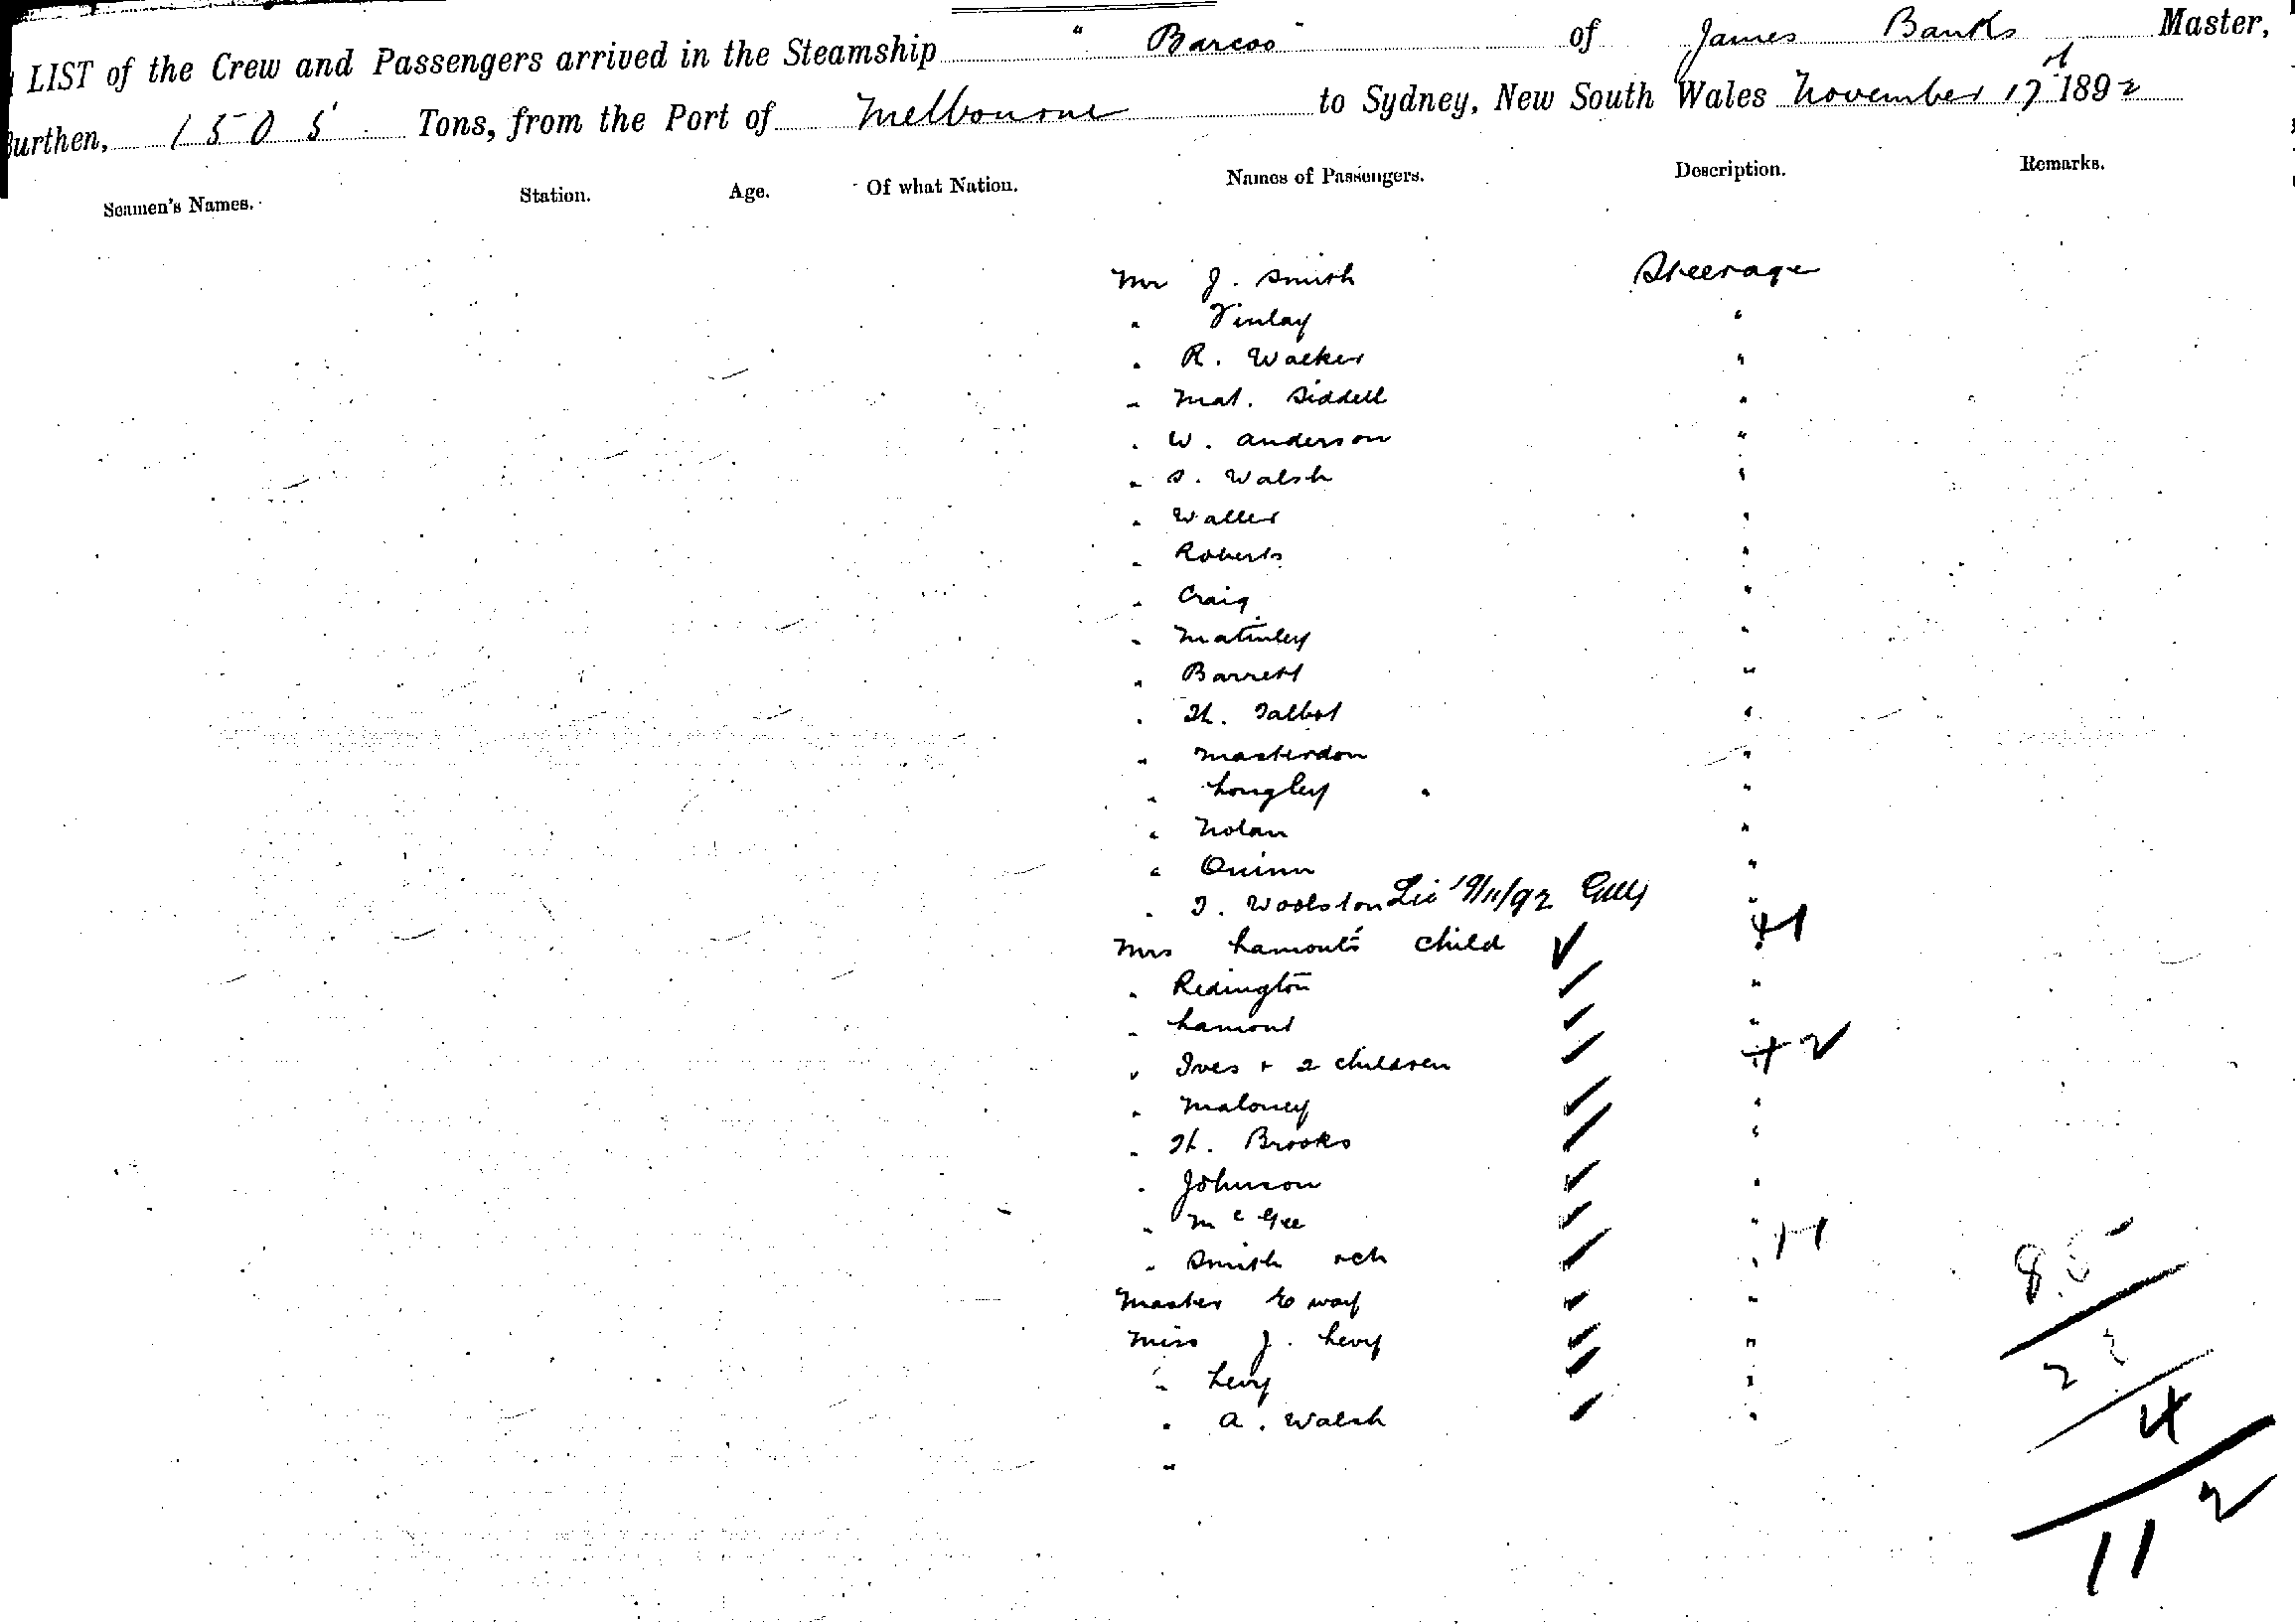 LIST of the Crew and Passengers arrived in the Steamship "Barcoo" of James Banks Master,
Burthen, 1505 Tons, from the Port of Melbourne to Sydney, New South Wales November 17 1892
Seamen's Names. Station. Age. Of what Nation. Names of Passengers. Description. Remarks.
Mr J. Smith Steerage
" Finlay "
" R. Walker "
" Mat. Siddell "
" W. Anderson "
" S. Walsh "
" Waller "
" Roberts "
" Craig "
" "
" Barrett "
" H. Talbot "
" Masterdon "
" Longley "
" Nolan "
" Quinn "
" T. Woolston 19/11/92 "
Mrs Lamont's child "
" Redington "
" Lamont "
" Ives + 2 children "
" Maloney "
" H. Brooks "
" Johnson "
" McGee "
" Smith + ch "
Master E Way "
Miss J. Levy "
" Levy "
" A. Walsh "
"
4
11 2